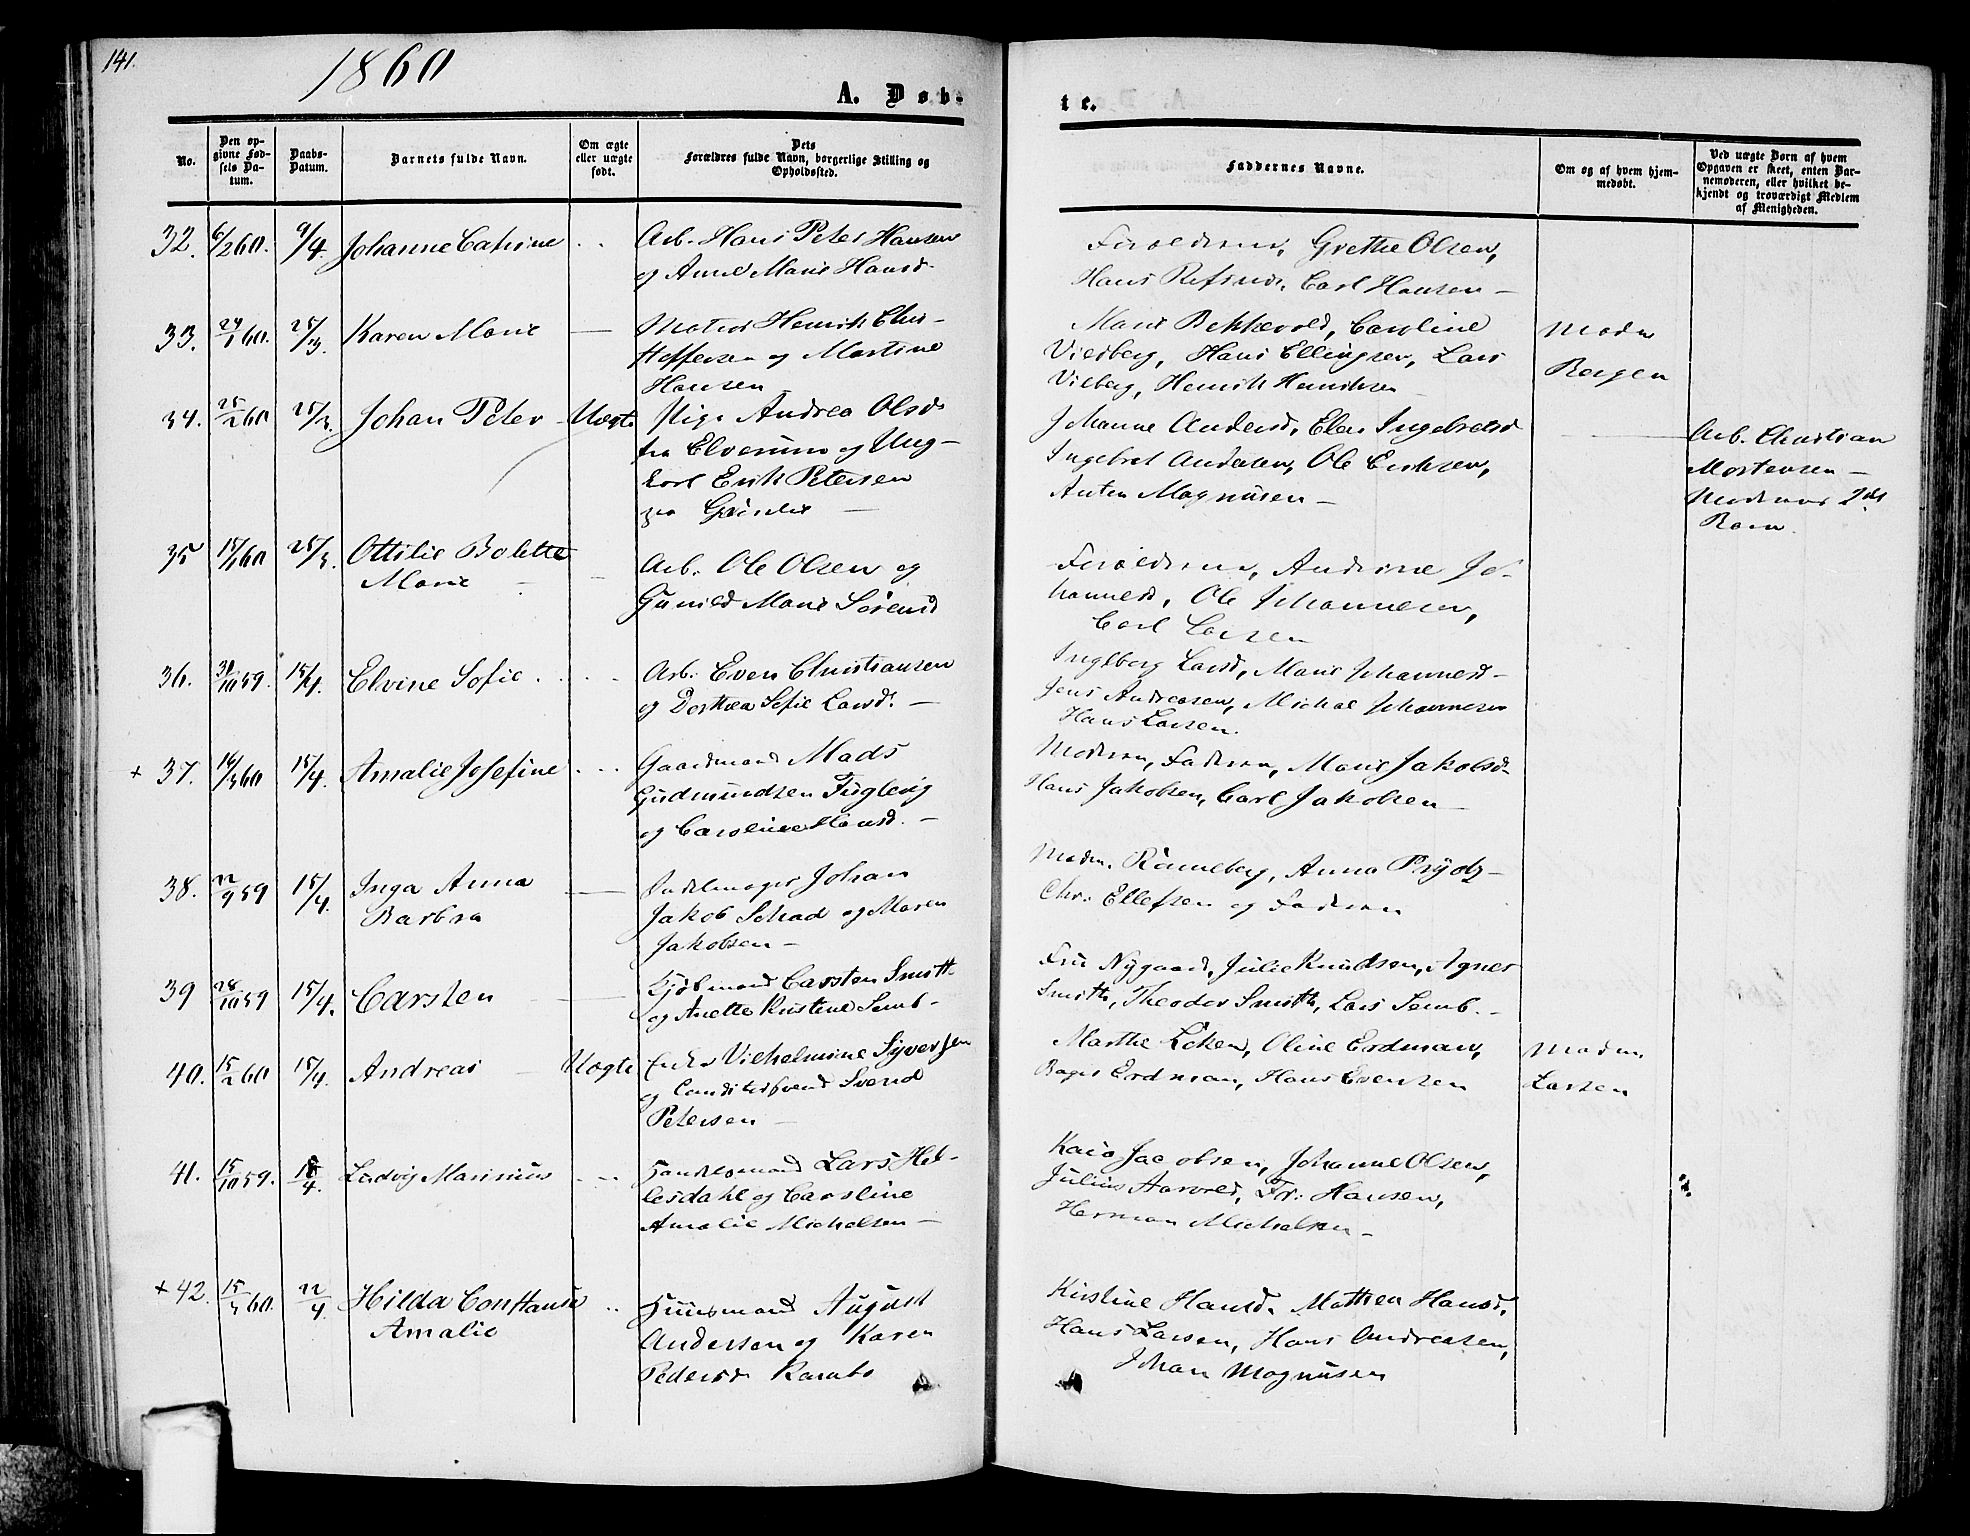 141.
1860
A. Døb-
te.
No.
Den op-
givne Fød-
sels Da-
tum.
Daabs-
Datum.
Barnets fulde Navn.
Om ægte
eller uægte
født.
Dets
Forældres fulde Navn, borgerlige Stilling og
Opholdssted.
Faddernes Navne.
Om og af hvem hjem-
medøbt.
Ved uægte Born af hvem
Opgaven er skeet, enten Bar-
nemoderen, eller hvilket be-
kjendt og troværdigt Medlem
af Menigheden.
32. 6/2 60. 9/4. Johanne Catrine Arb. Hans Peter Hansen
og Anne Marie Hansd.
Forældrene, Grethe Olsen,
Hans Refsnes, Carl Hansen –
33. 24/1 60. 25/3. Karen Marie — Matros Henrik Chri-
stoffersen og Martine
Hansen
Marie Bekkevold, Caroline
Vieberg, Hans Ellingsen, Lars
Vieberg, Henrik Henriksen
Madm
Bergen
34. 25/2 60 25/3. Johan Peter – Uægte Pige Andrea Olsd.
fra Elverum og Ung-
karl Erik Petersen
paa
Johanne Andersd, Elen Ingebretsd
Ingebret Andersen, Ole Eriksen,
Anten Magnusen –
Arb. Christian
Mortensen –
Moderens 2det
Barn.
35 15/1 60 25/3. Ottilie Bolette
Marie –
Arb. Ole Olsen og
Gunild Marie Sørensd
Forældrene, Andrine Jo-
hannesd, Ole Johannesen,
Carl Larsen
36. 31/10 59. 15/4. Elvine Sofie Arb. Even Christiansen
og Dorthea Sofie Larsd. –
Ingeborg Larsd, Marie Johannesd –
Jens Andreasen, Michal Johannesen
Hans Larsen.
+ 37. 16/3 60 15/4. Amalie Josefine Gaardmand Mads
Gudmundsen Fuglevig
og Caroline Hansd. –
Moderen, Faderen, Marie Jakobsd –
Hans Jakobsen, Carl Jakobsen –
38. 22/9 59 15/4. Inga Anna
Barbra
— Sadelmager Johan
Jakob Schad og Maren
Jakobsen –
Madm. Ronneberg, Anna Prydz –
Chr. Ellefsen og Faderen
39 28/10 59 15/4. Carsten — Kjøbmand Carsten Smith
og Anette Kristine Semb –
Fru Nygaard, Julie Knudsen, Agnes
Smith, Theodor Smith, Lars Semb. –
40. 15/2 60 15/4. Andreas – Uægte Enke Vilhelmine Syversen
og Conditorsvend Svend
Petersen –
Marthe Löken, Oline Erdman,
Erdman, Hans Evensen
Madm
Larsen
41. 15/10 59. 15/4. Ludvig Marinius Handelsmand Lars Hel-
lesdahl og Caroline
Amalie Michelsen –
Kaia Jacobsen, Johanne Olsen,
Julius Aarvold, Fr. Hansen,
Herman Michelsen –
+ 42. 15/3 60. 22/4 Hilda Constanse
Amalie
Huusmand August
Andersen og Karen
Pedersd Kambo
Kirstine Hansd. Mathea Hansd,
Hans Larsen, Hans Andreasen,
Johan Magnusen